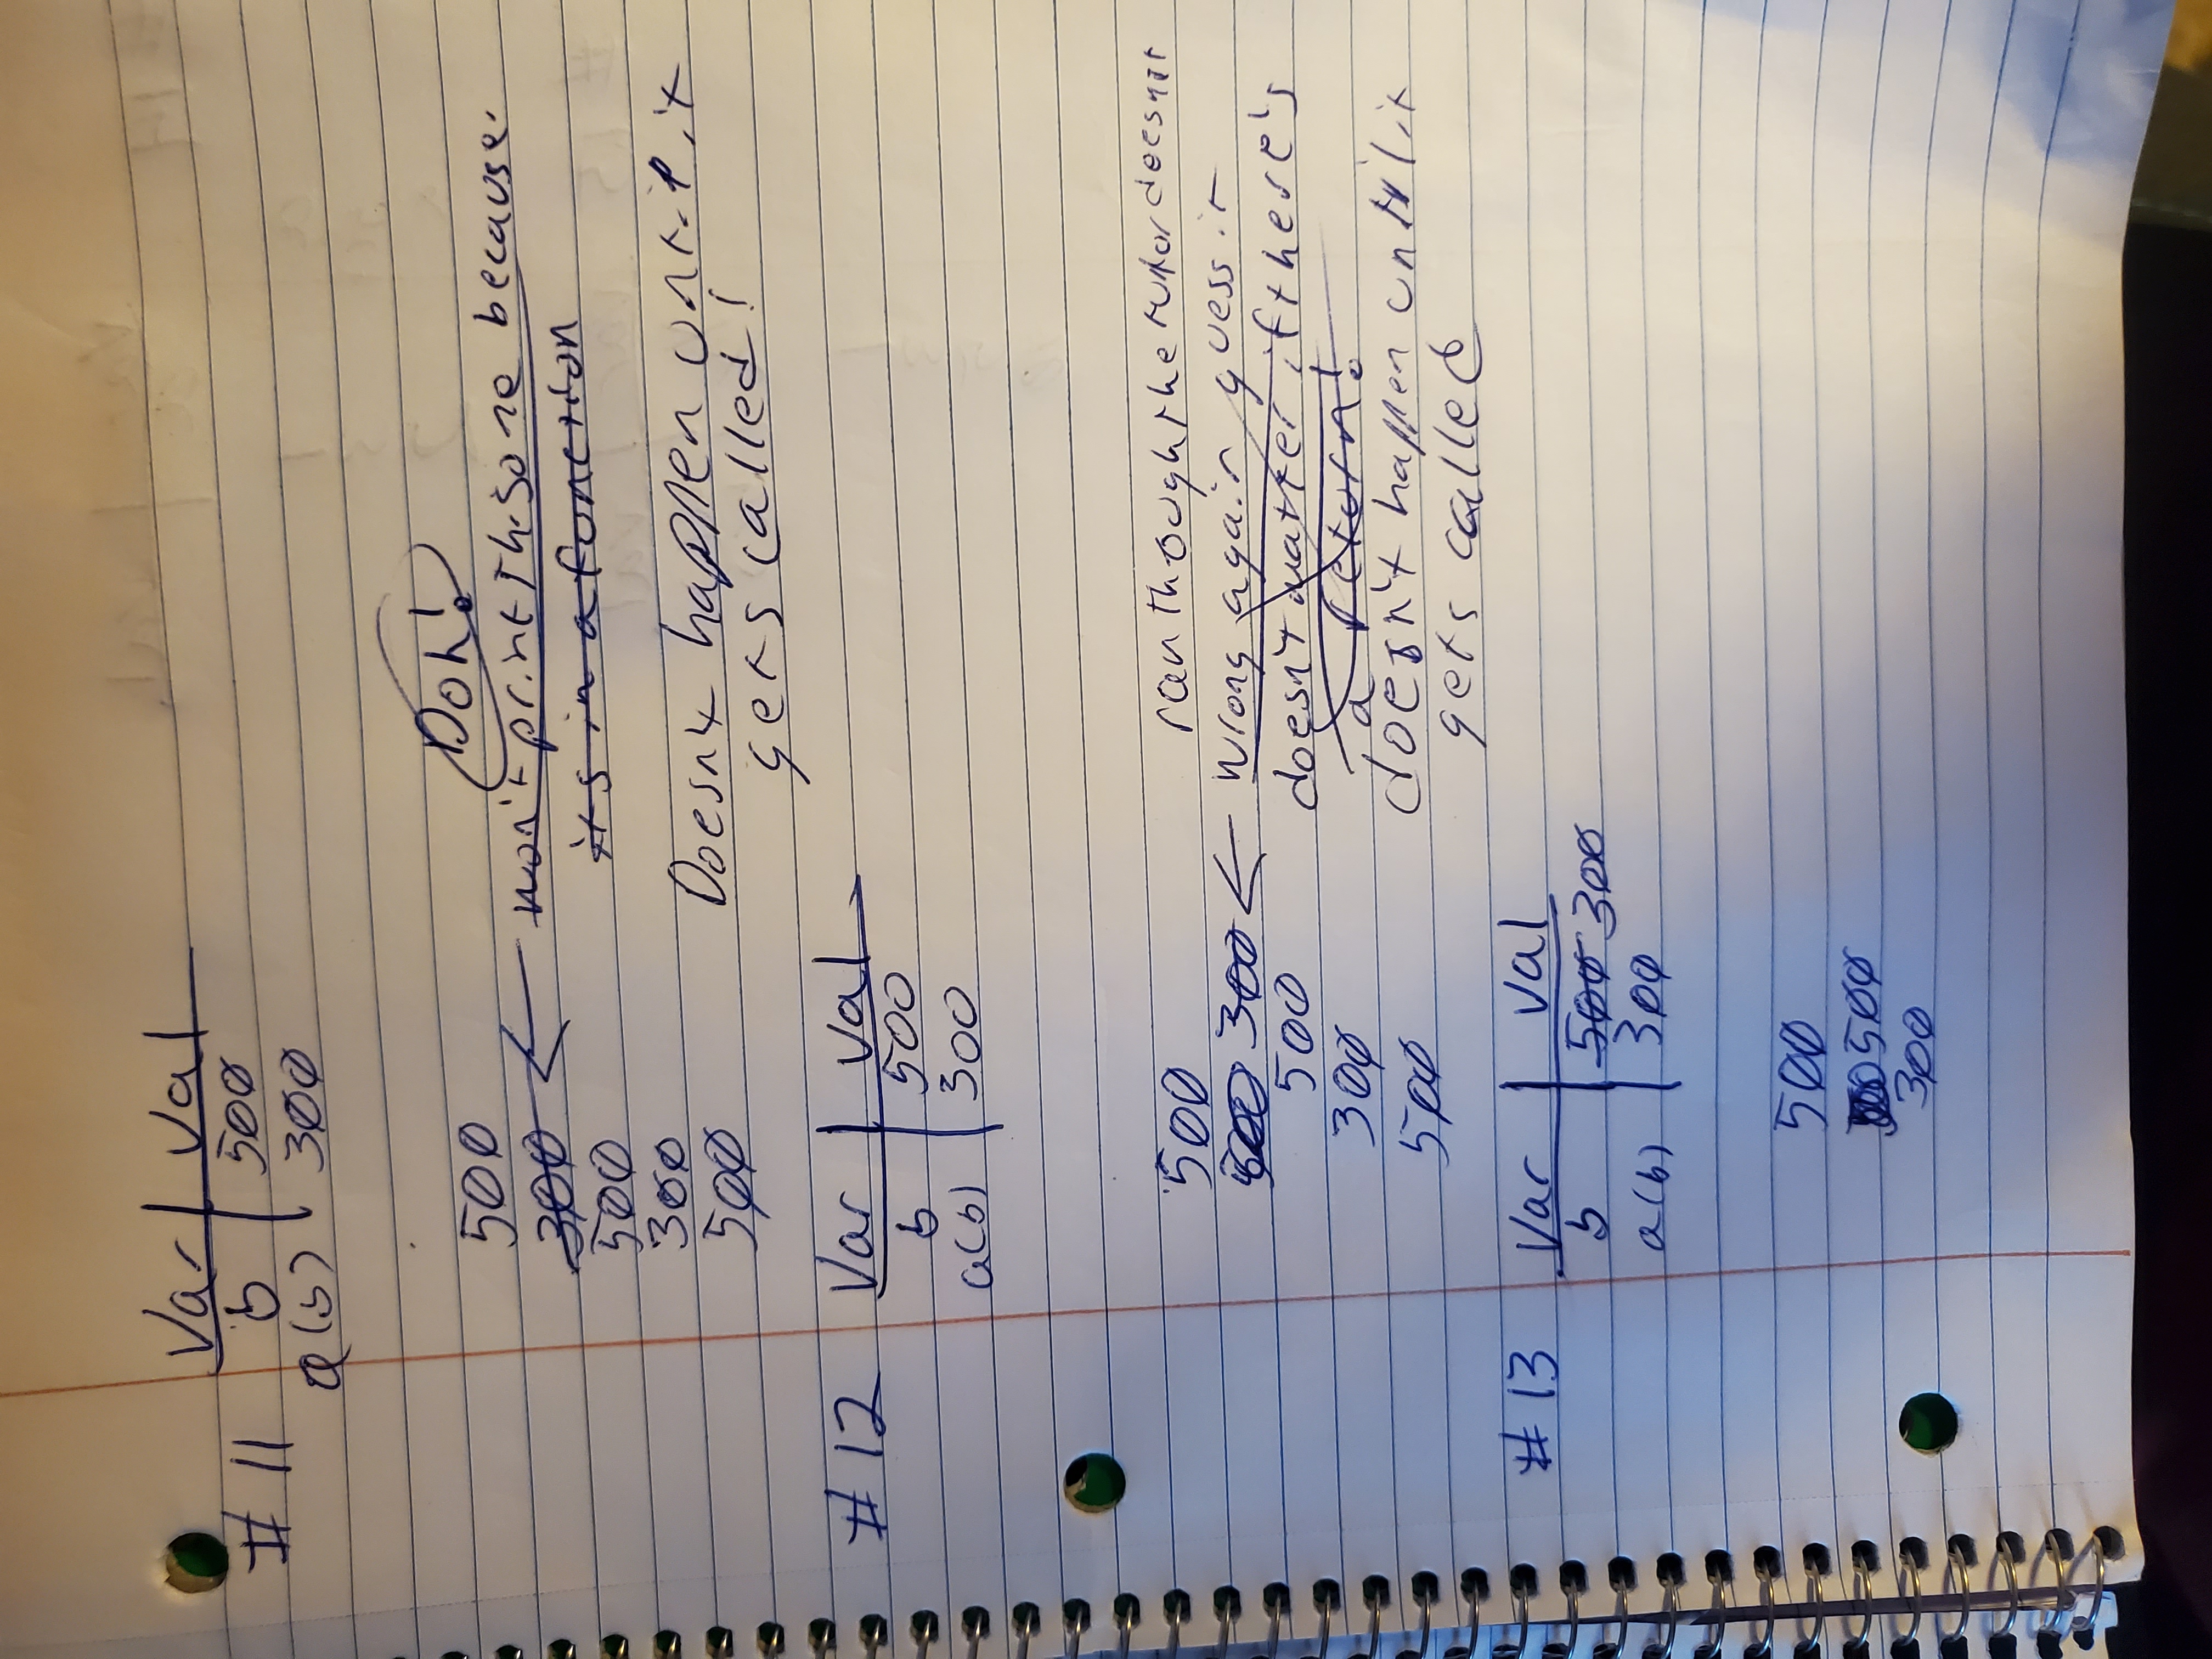 Var | Val
# 11 b | 500
a(b) 300
Doh!
500
300 ← won't print this one because
its in a function
500
300
Doesnt happen until it
500
gets called!
# 12 Var | Val
b | 500
a(b) | 300
500
ran though the tutor doesn't
300 ← Wrong again guess it
500
doesn't matter if there's
300
a return!
500
doesn't happen until it
gets called
# 13 Var | Val
b | 500 300
a(b) | 300
500
500
300